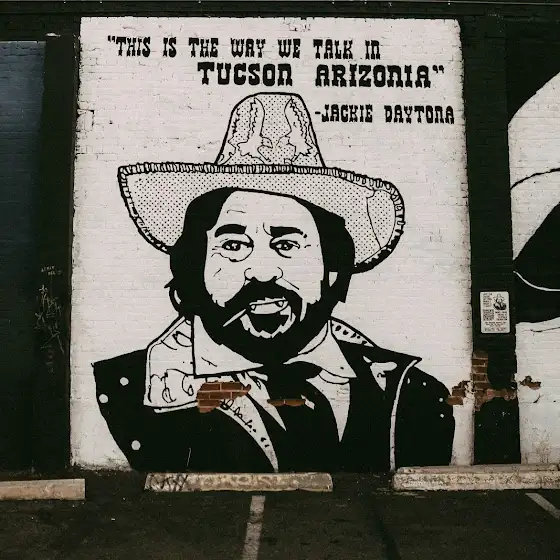 "THIS IS THE WAY WE TALK IN
TUCSON ARIZONIA"
-JACKIE DAYTONA